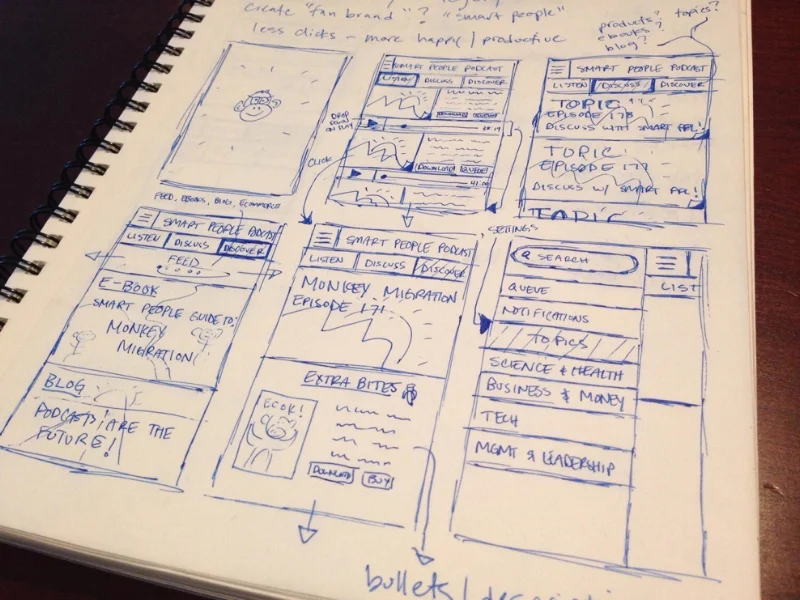 create "fan brand"? "smart people"
less clicks - more happy / productive
products?
ebooks?
blog?
topics?
SMART PEOPLE PODCAST
LISTEN DISCUSS DISCOVER
DOWNLOAD QUEUE
DROP
DOWN
ON PLAY
DOWNLOAD QUEUE
CLICK
SMART PEOPLE PODCAST
LISTEN DISCUSS DISCOVER
TOPIC:
EPISODE 178
DISCUSS WITH SMART PPL!
TOPIC:
EPISODE 177
DISCUSS W/ SMART PPL!
TOPIC
FEED, EBOOKS, BLOG, ECOMMERCE
SMART PEOPLE PODCAST
LISTEN DISCUSS DISCOVER
FEED
E-BOOK
SMART PEOPLE GUIDE TO:
MONKEY
MIGRATION
BLOG
PODCASTS ARE THE
FUTURE!
SMART PEOPLE PODCAST
LISTEN DISCUSS DISCOVER
MONKEY MIGRATION
EPISODE 171
EXTRA BITES
EOOK!
DOWNLOAD BUY
SETTINGS
SEARCH
LIST
QUEUE
NOTIFICATIONS
TOPICS
SCIENCE & HEALTH
BUSINESS & MONEY
TECH
MGMT & LEADERSHIP
bullets /